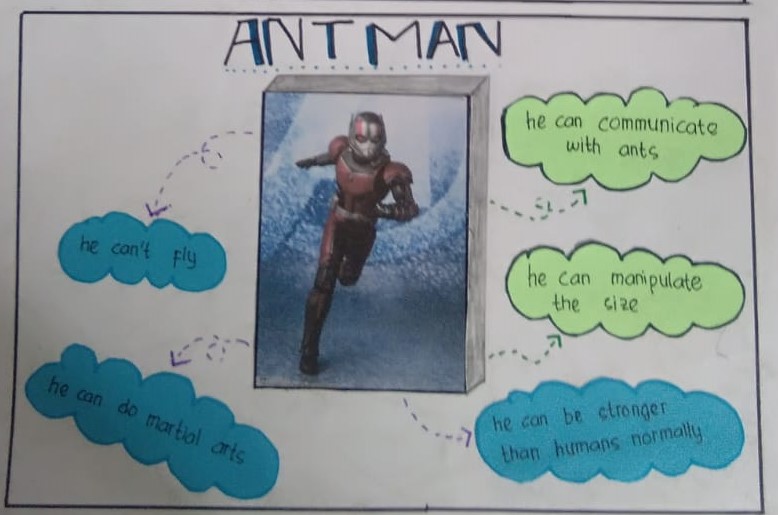 ANTMAN
he can communicate
with ants
he can't fly
he can manipulate
the size
he can do martial arts
he can be stronger
than humans normally